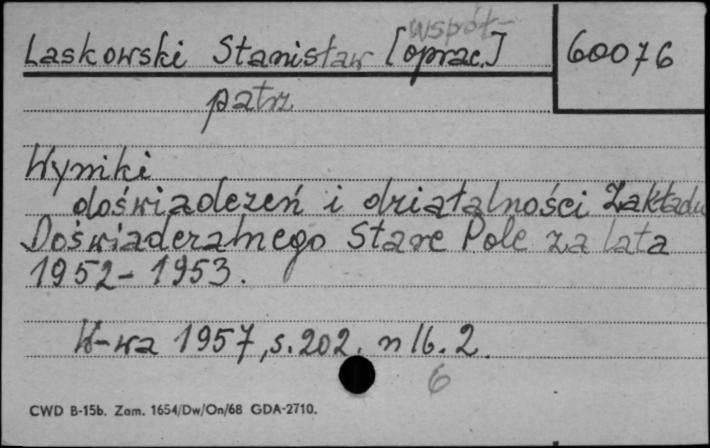 współ-
Laskowski Stanisław [oprac.] 60076
patrz
Wyniki
doświadczeń i działalności Zakładu
Doświadczalnego Stare Pole za lata
1952-1953.
W-wa 1957, s. 202. nlb. 2.
6
CWD B-15b. Zam. 1654/Dw/On/68 GDA-2710.